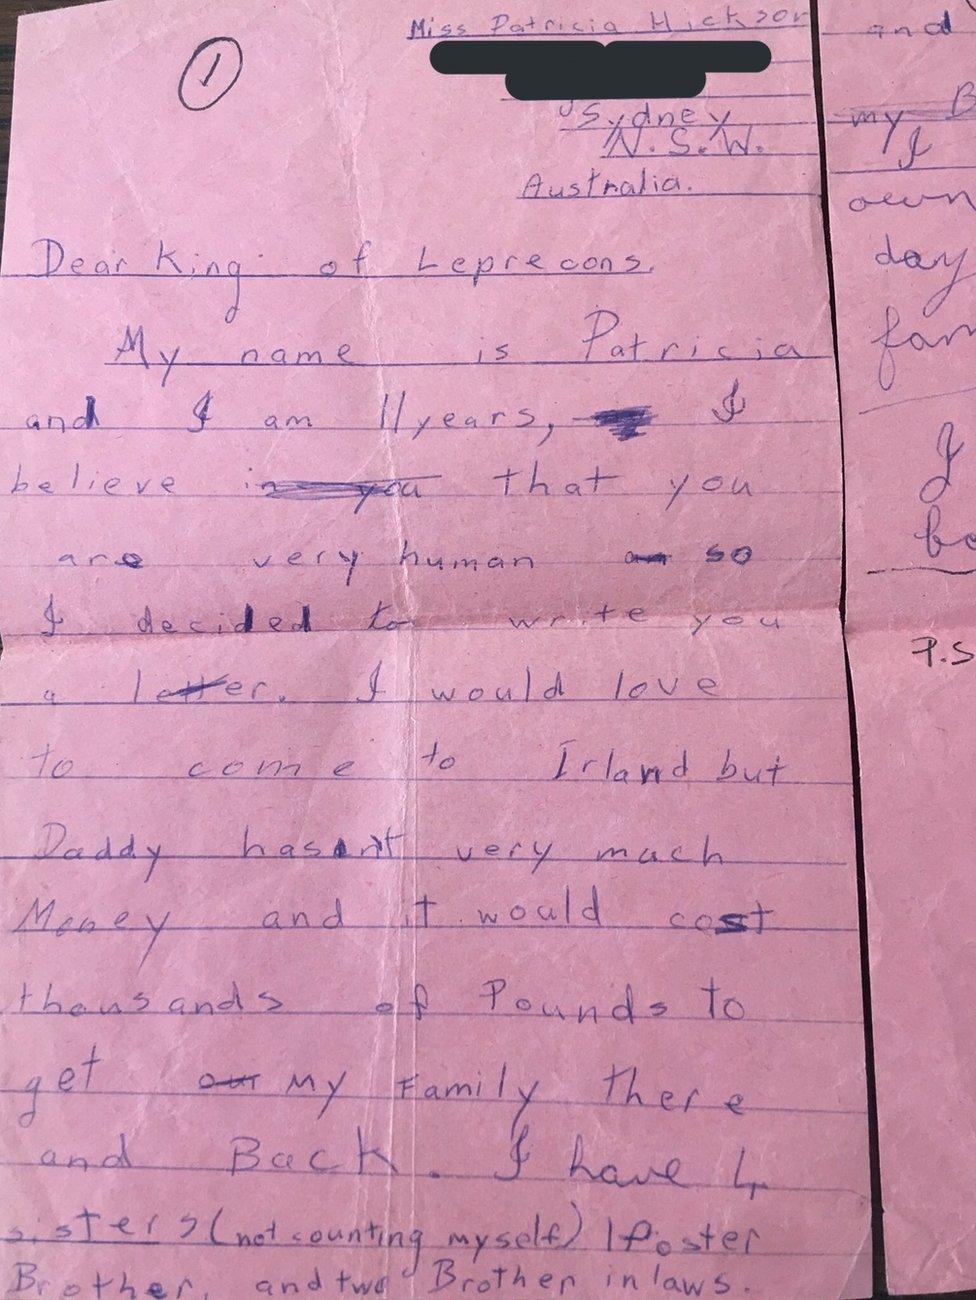 1
Miss Patricia Hickson
Sydney
N.S.W.
Australia.
Dear King of Leprecons.
My name is Patricia
and I am 11 years, I
believe in you that you
are very human so
I decided to write you
a letter. I would love
to come to Irland but
Daddy hasnt very much
Money and it would cost
thousands of Pounds to
get our my Family there
and Back. I have 4
sisters (not counting myself) 1 foster
Brother, and two Brother in laws.
and
my B
I
own
day
fam
I
be
P.S